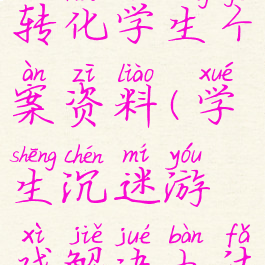 转化学生个
àn zī liào xué
案资料(学
shēng chén mí yóu
生沉迷游
xì jiě jué bàn fǎ
戏解决办法